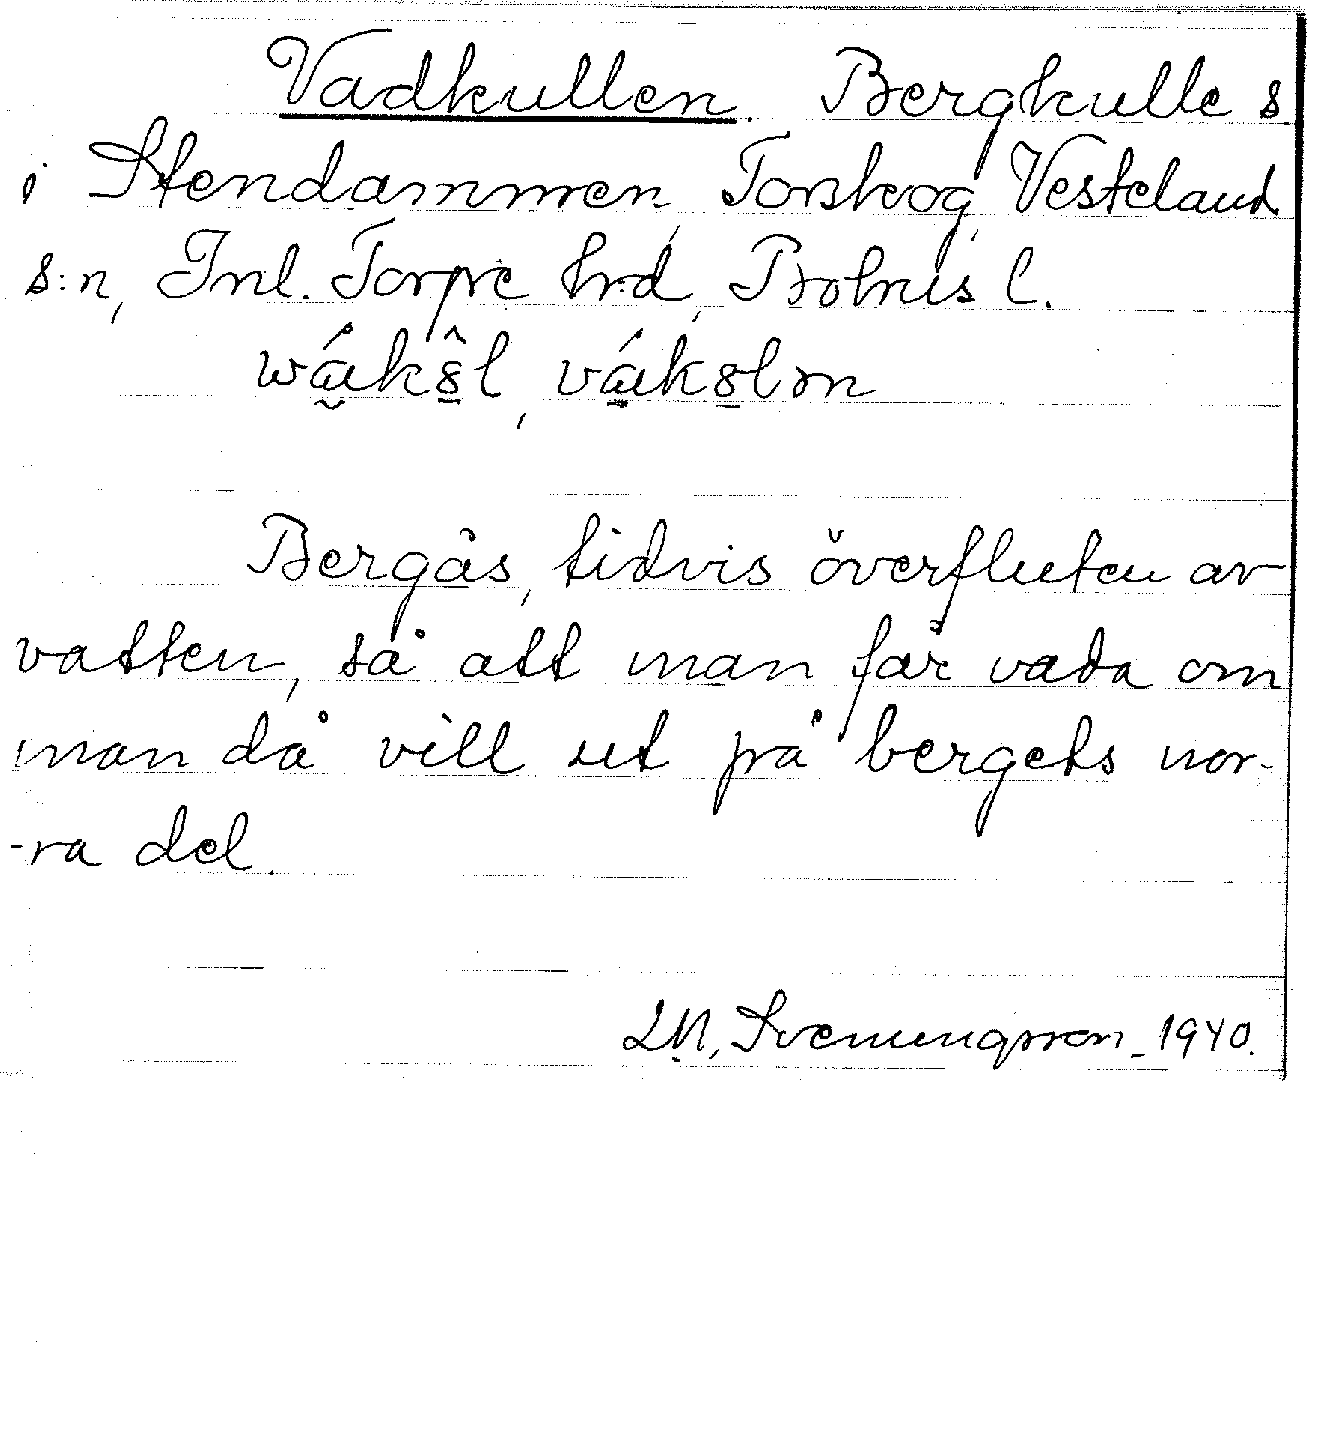 Vadkullen. Bergkulle s.
i Stendammen, Torskog, Vesteland
s:n, Inl. Torpe hrd, Bohus l.
Bergås, tidvis överfluten av
vatten, så att man får vada om
man då vill ut på bergets nor-
-ra del.
Svenungsson_1940.